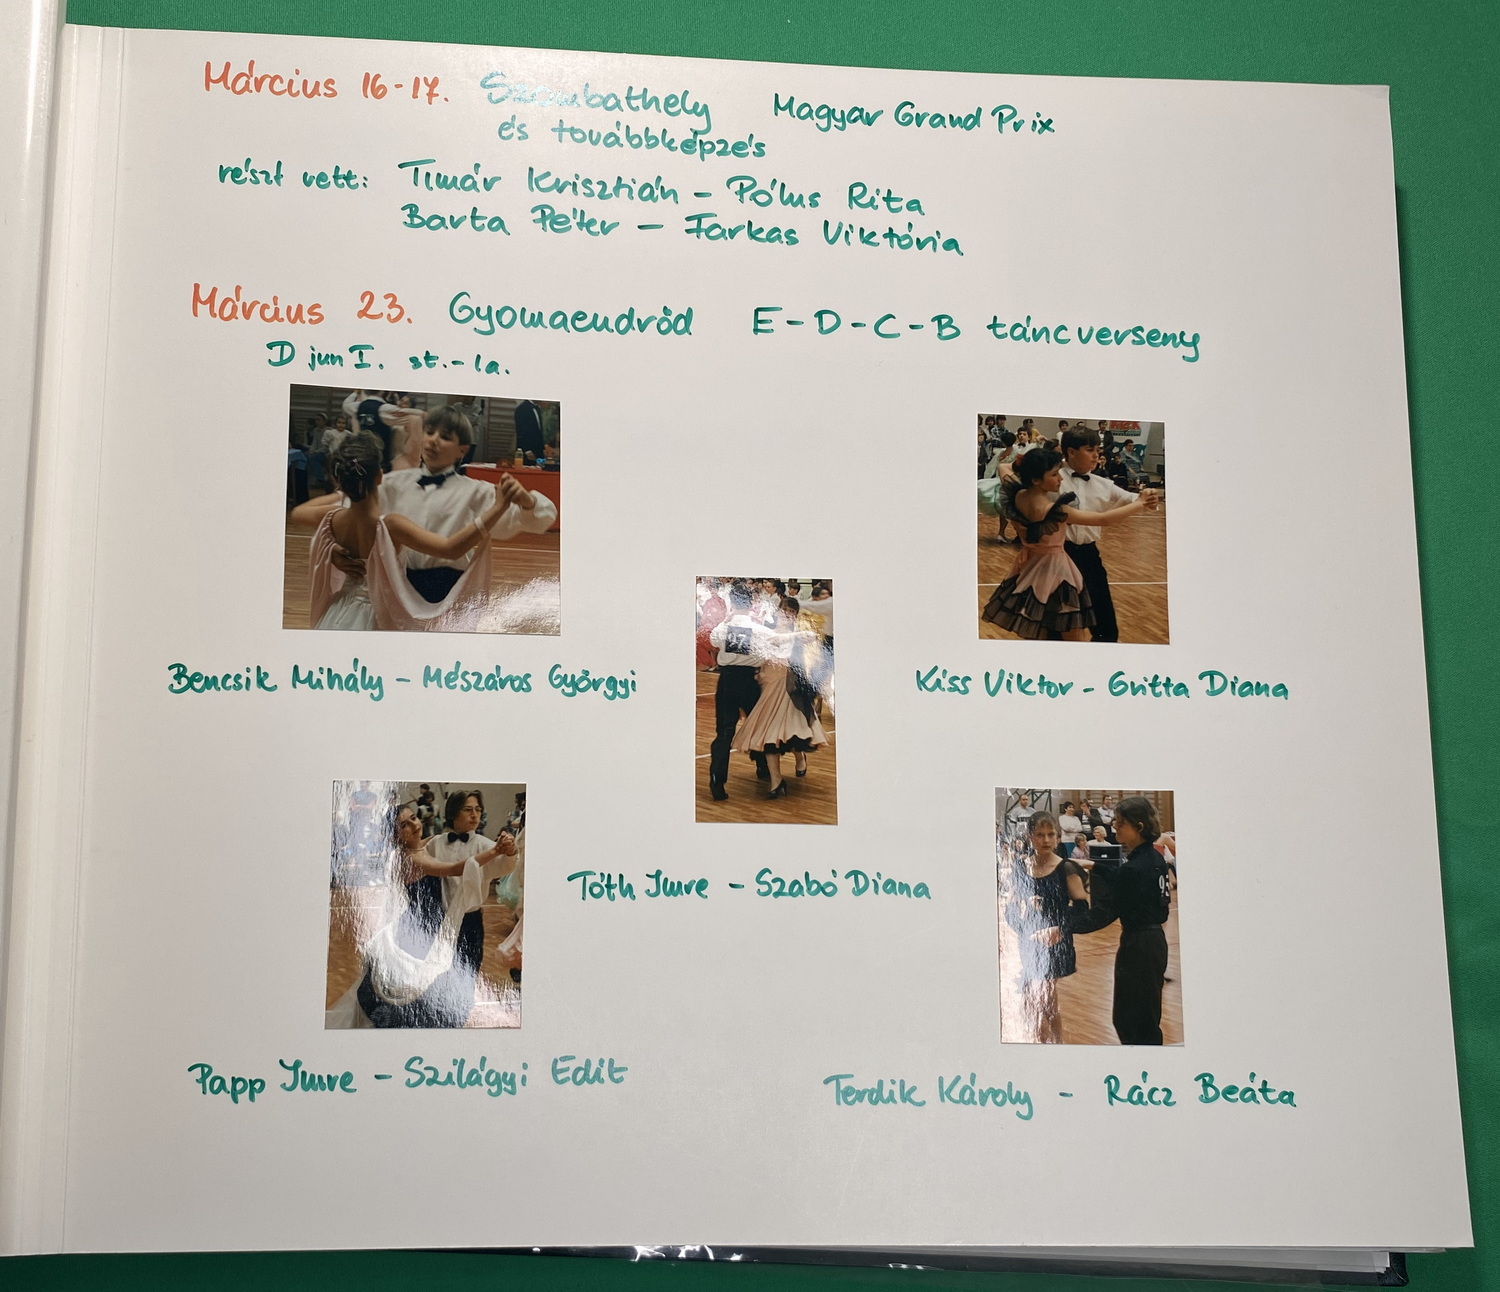 Március 16-17. Szombathely Magyar Grand Prix
és továbbképzés
részt vett: Tímár Krisztián - Pólus Rita
Barta Péter - Farkas Viktória
Március 23. Gyomaendrőd E-D-C-B táncverseny
D jun I. st.-la.
Bencsik Mihály - Mészáros Györgyi
Kiss Viktor - Gritta Diana
Tóth Imre - Szabó Diana
Papp Imre - Szilágyi Edit
Terdik Károly - Rácz Beáta